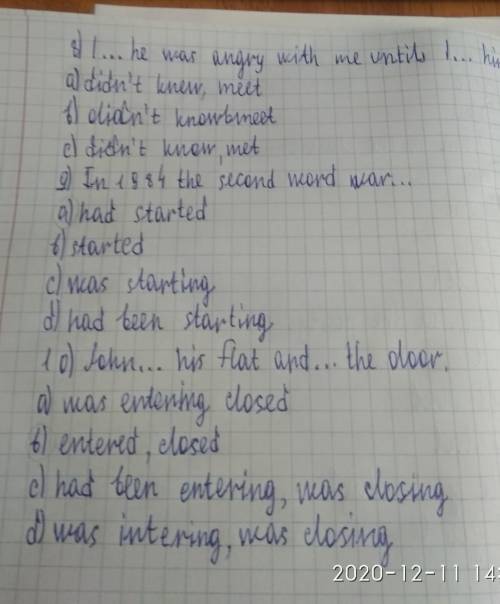 8) I... he was angry with me until I... hi
a) didn't knew, meet
b) didn't know meet
c) didn't know, met
9) In 1984 the second word war...
a) had started
b) started
c) was starting
d) had been starting
10) John... his flat and... the door.
a) was entering, closed
b) entered, closed
c) had been entering, was closing
d) was intering, was closing
2020-12-11 14: